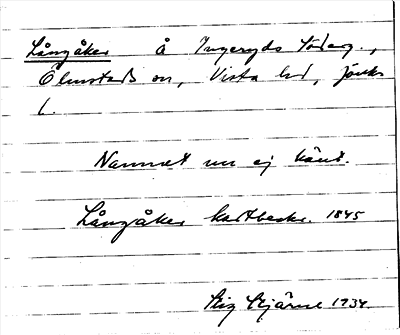 Långåker å Ingeryds Söderg.,
Ölmstads sn, Vista hd, Jönk.
l.
Namnet nu ej känt.
Långåker kartbeskr. 1845
Stig Stjärne 1934